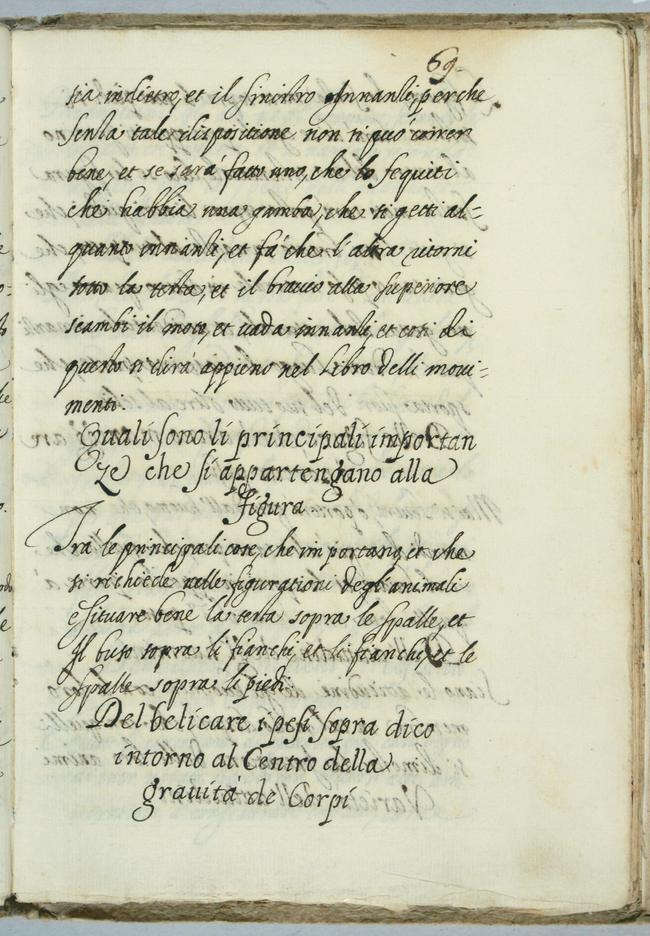 69.
sia indietro, et il sinistro Innanti, perche
senza tale dispositione non si può correr
bene, et se sarà fatto uno, che lo sequiti
che habbia una gamba, che si getti al=
quanto innanti, et fà che l'altra ritorni
sotto la testa, et il braccio alla superiore
scambi il moto, et vada innanti, et così di
questo si dirà appieno nel Libro delli movi=
menti.
Quali sono li principali importan
ze che si appartengano alla
figura
Trà le principali cose, che importano, et che
si richiede nelle figurationi degl'animali
è situare bene la testa sopra le spalle, et
Il busto sopra li fianchi, et li fianchi, et le
spalle sopra li piedi.
Del belicare i pesi sopra dico
intorno al Centro della
gravità de Corpi